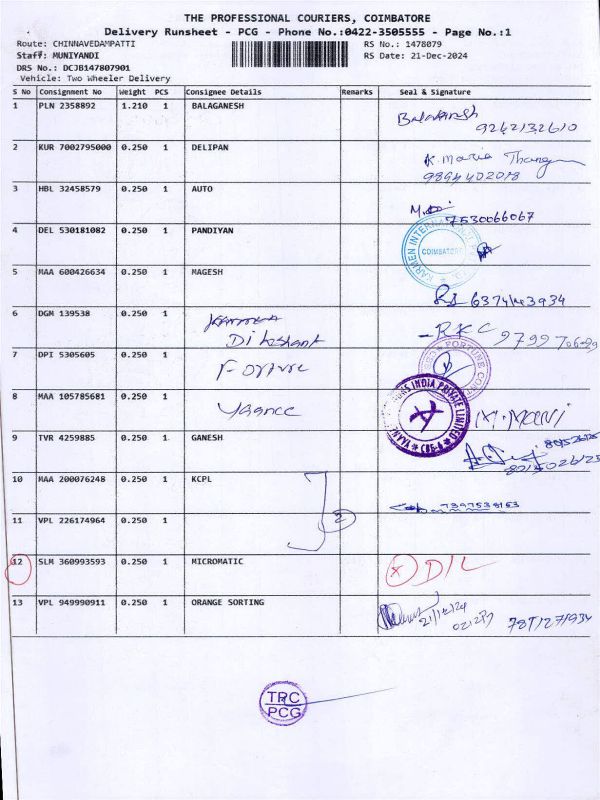 THE PROFESSIONAL COURIERS, COIMBATORE
Delivery Runsheet - PCG - Phone No.:0422-3505555 - Page No.:1
Route: CHINNAVEDAMPATTI RS No.: 1478079
Staff: MUNIYANDI RS Date: 21-Dec-2024
DRS No.: DCJB147807901
Vehicle: Two Wheeler Delivery
S No Consignment No Weight PCS Consignee Details Remarks Seal & Signature
1 PLN 2358892 1.210 1 BALAGANESH
9242132610
2 KUR 7002795000 0.250 1 DELIPAN K. Maria
9894402018
3 HBL 32458579 0.250 1 AUTO
7530066067
4 DEL 530181082 0.250 1 PANDIYAN COIMBATORE
5 MAA 600426634 0.250 1 MAGESH
6374143934
6 DGM 139538 0.250 1 RKC
7 DPI 5305605 0.250 1 FORTUNE
8 MAA 105785681 0.250 1 INDIA PRIVATE LIMITED M. MANI
9 TVR 4259885 0.250 1 GANESH
10 MAA 200076248 0.250 1 KCPL
2
11 VPL 226174964 0.250 1
12 SLM 360993593 0.250 1 MICROMATIC X D/L
13 VPL 949990911 0.250 1 ORANGE SORTING
21/12/24
TRC
PCG